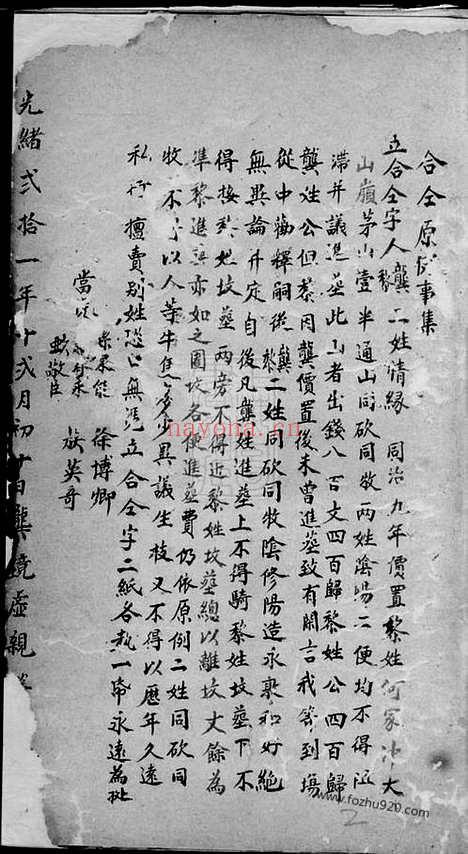 合仝原例事集
立合仝字人龔黎二姓情緣同治九年價置黎姓何家冲大
山嶺茅山壹半通山同砍同牧兩姓陰陽二便均不得阻
滯并議進塟此山者出錢八百文四百歸黎姓公四百歸
龔姓公但黎因龔價置後未曾進塟致有閑言我等到場
從中勸釋嗣後龔黎二姓同砍同牧陰修陽造永敦和好絶
無異論并定自後凡龔姓進塟上不得騎黎姓坟塟下不
得接黎姓坟塟兩旁不得近黎姓坟塟總以離坟丈餘為
準黎進塟亦如之圍坟各便進塟費仍依原例二姓同砍同
牧不 以人等牛 少異議生枝又不得以歷年久遠
私行擅賣别姓恐口無憑立合仝字二紙各執一帋永遠為批
當 徐博卿
敬臣 族英哥
光緒弍拾一年十弍月初十日龔鏡虛親筆
nayona.cn
www.fozhu920.com
2